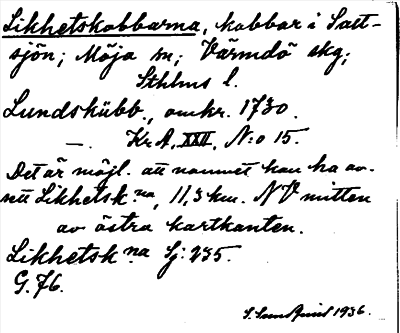 Likhetskobbarna, kobbar i Salt-
sjön; Möja sn; Värmdö skg;
Sthlms l.
Lundskübb., omkr. 1730.
—. Kr A, XXII, N:o 15.
Det är möjl. att namnet kan ha av-
sett Likhetsk:na, 11,3 km. NV mitten
av östra kartkanten.
Likhetsk:na Sj: 235.
G. 76.
S. Sundquist 1936.